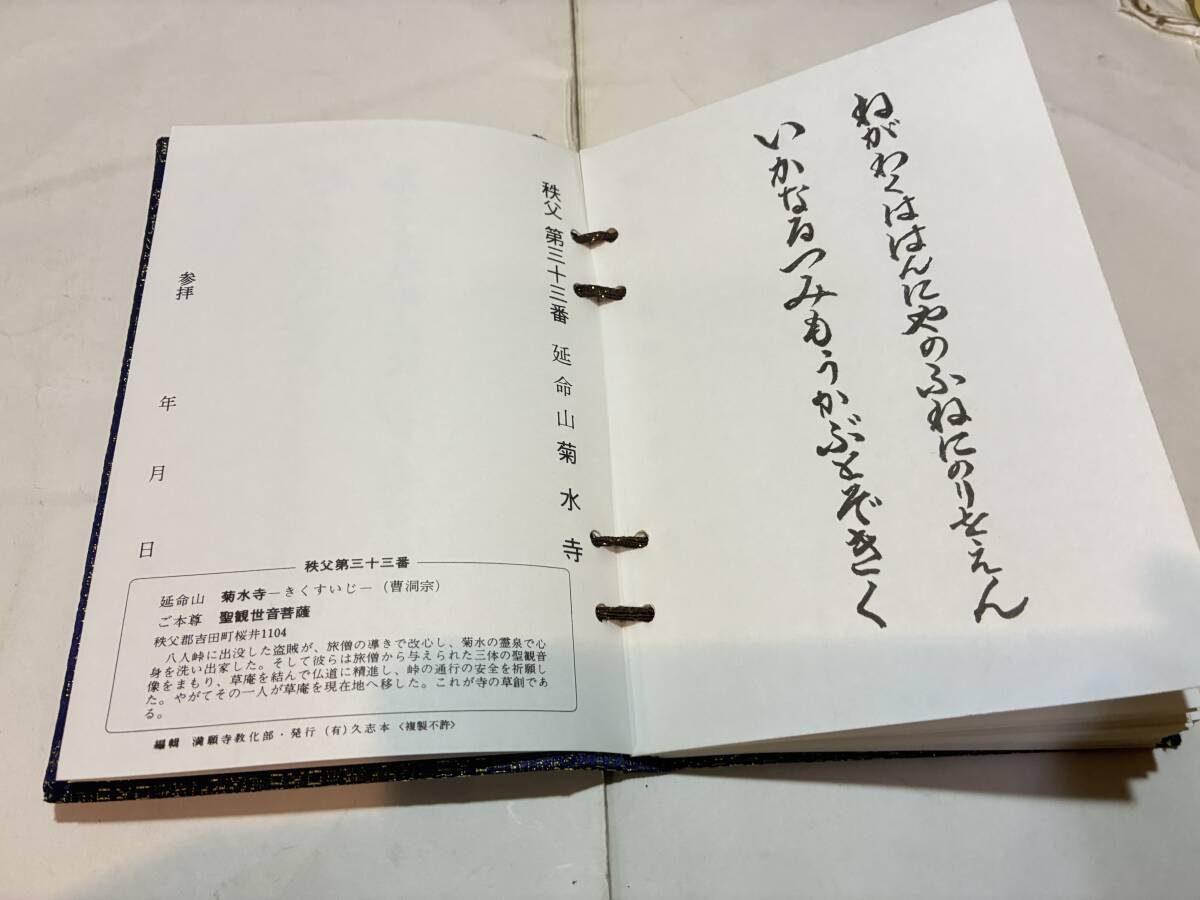 ねがわくははんにやのふねにのりをえん
いかなるつみもうかぶとぞきく
秩父 第三十三番 延命山菊水寺
参拝 年 月 日
秩父第三十三番
延命山 菊水寺―きくすいじ―(曹洞宗)
ご本尊 聖観世音菩薩
秩父郡吉田町桜井1104
八人峠に出没した盗賊が、旅僧の導きで改心し、菊水の霊泉で心
身を洗い出家した。そして彼らは旅僧から与えられた三体の聖観音
像をまもり、草庵を結んで仏道に精進し、峠の通行の安全を祈願し
た。やがてその一人が草庵を現在地へ移した。これが寺の草創であ
る。
編輯 満願寺教化部・発行 (有)久志本〈複製不許〉